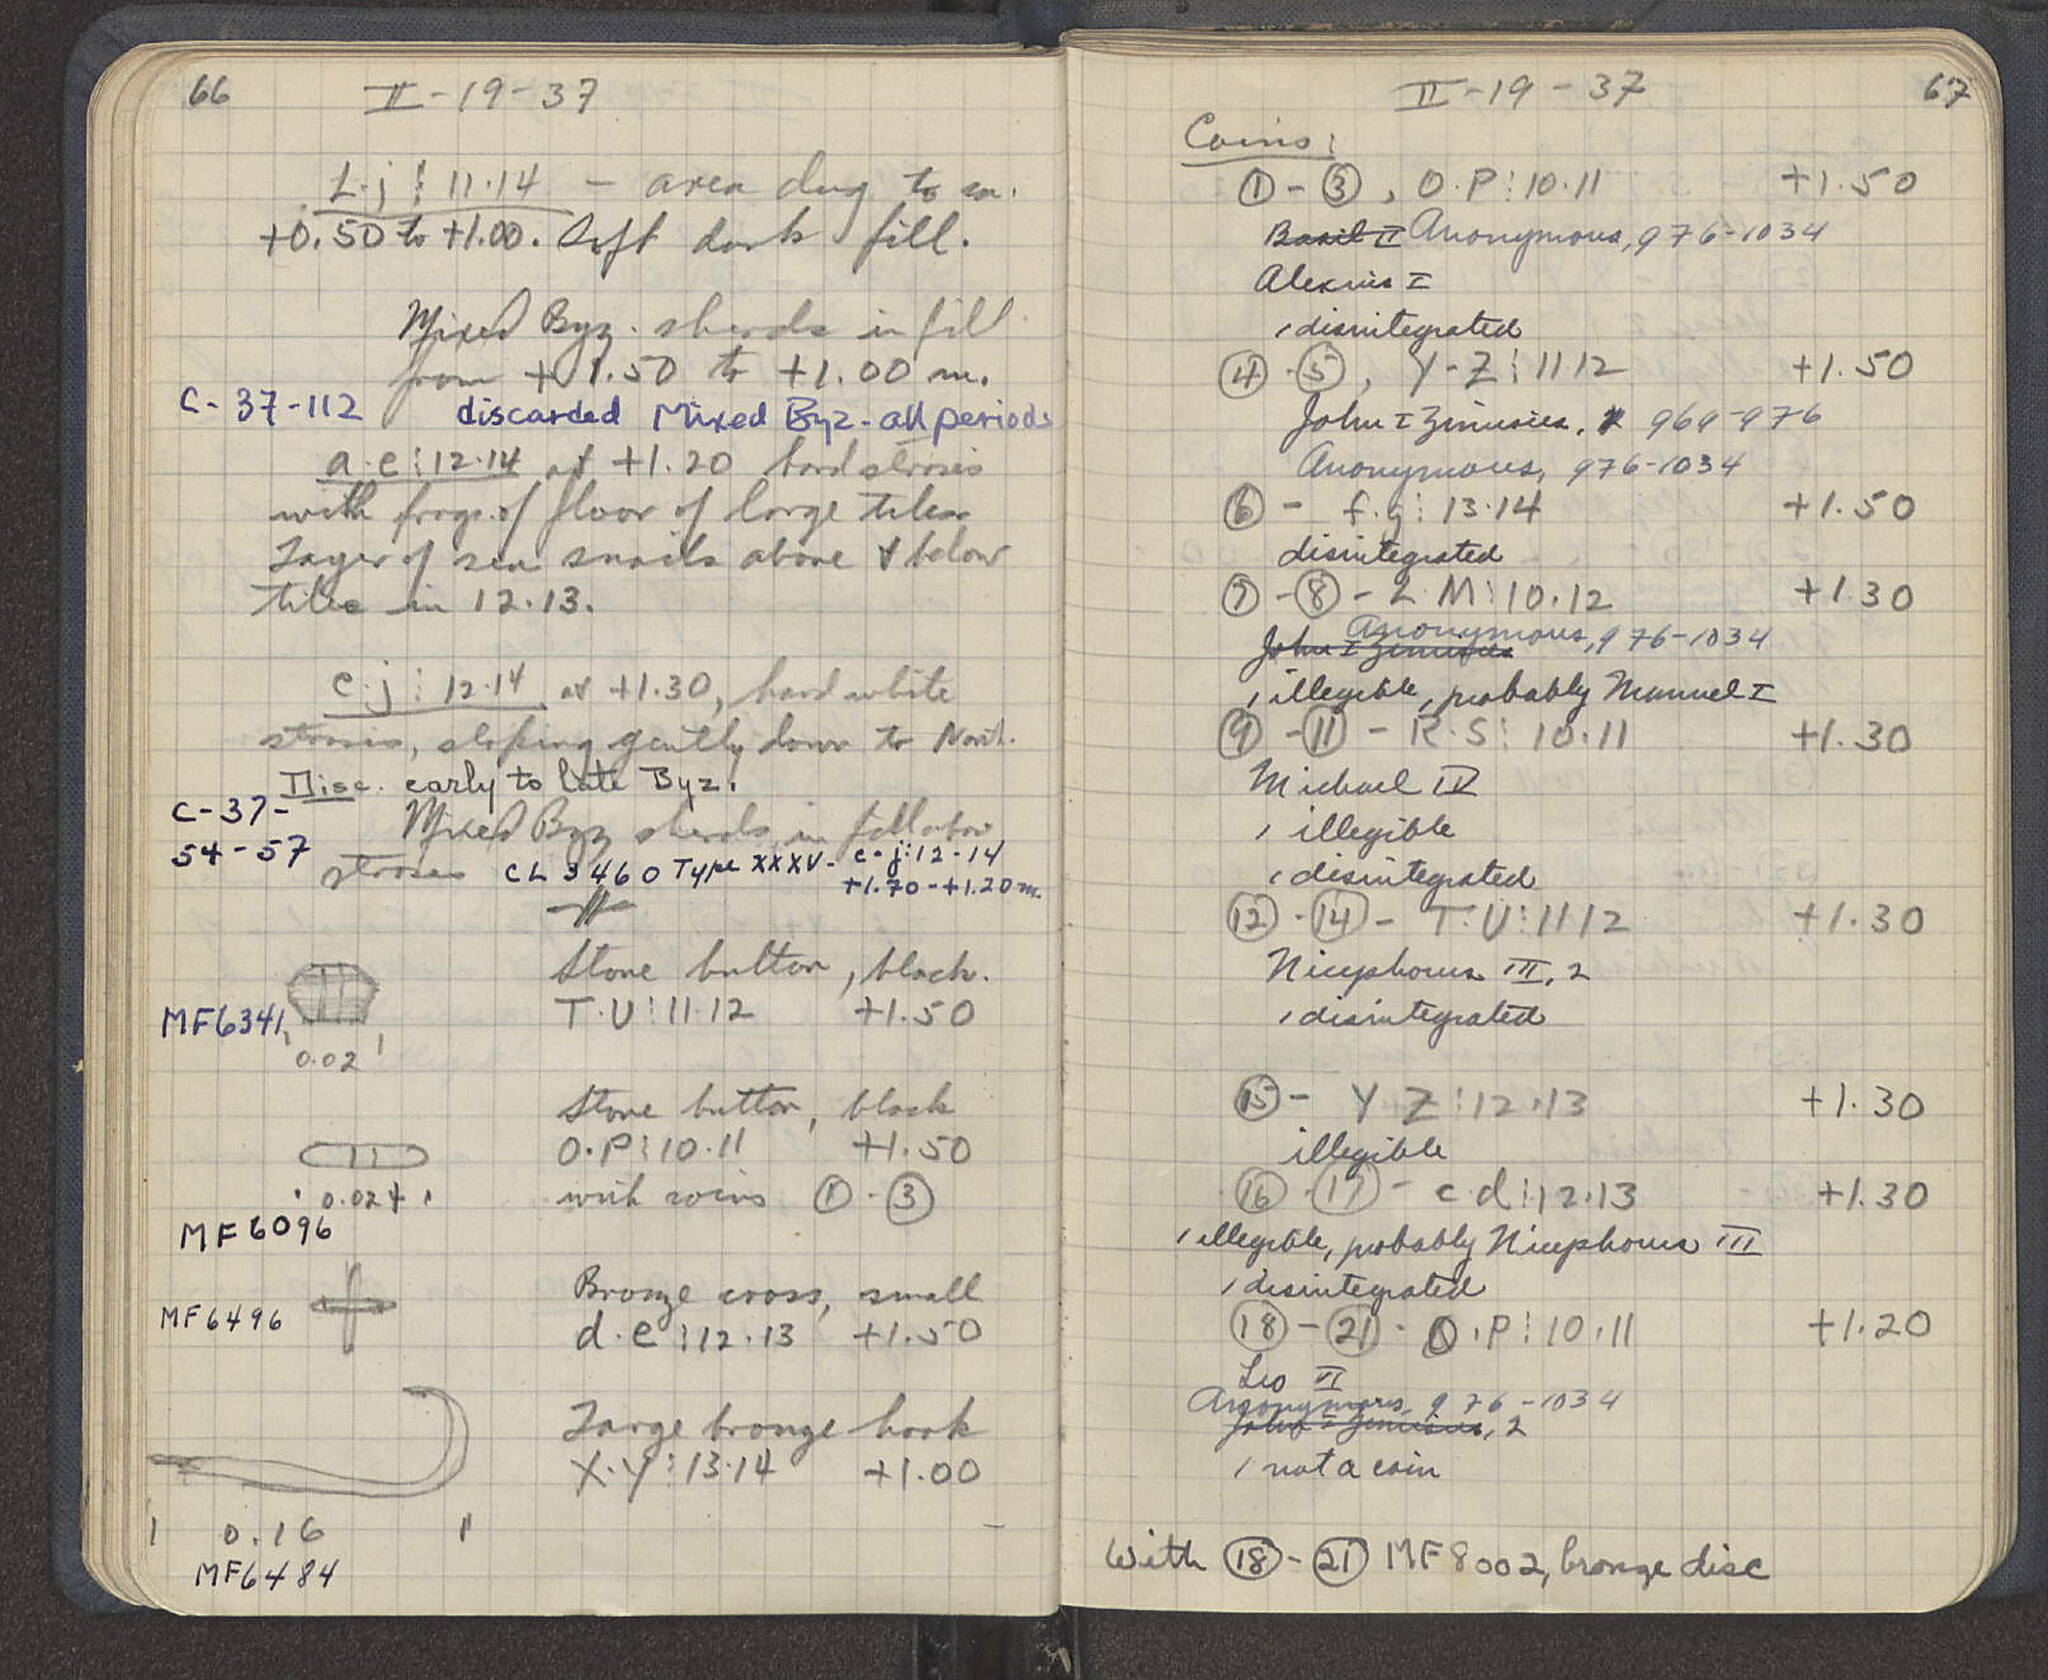 66
II-19-37
L·j⋮11·14 – area dug to m.
+0.50 to +1.00. Soft dark fill.
Mixed Byz. sherds in fill
from +1.50 to +1.00 m.
C-37-112 discarded Mixed Byz-all periods
a·e⋮12·14 at +1.20 hard stroses
with frags. of floor of large tiles
Layer of sea snails above & below
tiles in 12.13.
e·j⋮12·14 at +1.30, hard white
strosis, sloping gently down to North.
Disc. early to late Byz.
C-37-
54-57
Mixed Byz sherds in fill above
stroses CL 3460 Type XXXV- e-j⋮12-14
+1.70-+1.20 m.
Stone button, black.
T·U⋮11·12 +1.50
MF6341
0.02
Stone button, black
O.P⋮10.11 +1.50
with coins ①-③
0.024
MF6096
Bronze cross, small
d.e⋮12.13 +1.50
MF6496
Large bronze hook
X·Y⋮13·14 +1.00
0.16
MF6484
II-19-37
67
Coins:
①-③, O.P⋮10.11 +1.50
Basil II Anonymous, 976-1034
Alexius I
1 disintegrated
④-⑤, Y-Z⋮11·12 +1.50
John I Zimisces, 969-976
Anonymous, 976-1034
⑥ - f.g⋮13·14 +1.50
disintegrated
⑦-⑧-L M⋮10.12 +1.30
Anonymous, 976-1034
John I Zimisces
1 illegible, probably Manuel I
⑨-⑪-R.S⋮10.11 +1.30
Michael IV
1 illegible
1 disintegrated
⑫-⑭-T.U⋮11·12 +1.30
Nicephorus III, 2
1 disintegrated
⑮- Y Z⋮12.13 +1.30
illegible
⑯-⑰-c·d⋮12·13 +1.30
1 illegible, probably Nicephorus III
1 disintegrated
⑱-㉑-O.P⋮10.11 +1.20
Leo VI
Anonymous 976-1034
John I Zimisces, 2
1 not a coin
With ⑱-㉑ MF8002, bronze disc